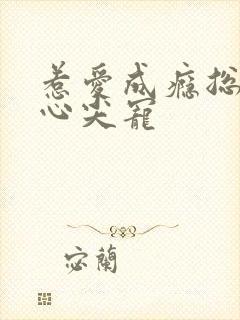 惹愛成癮総
心尖寵
宓蘭